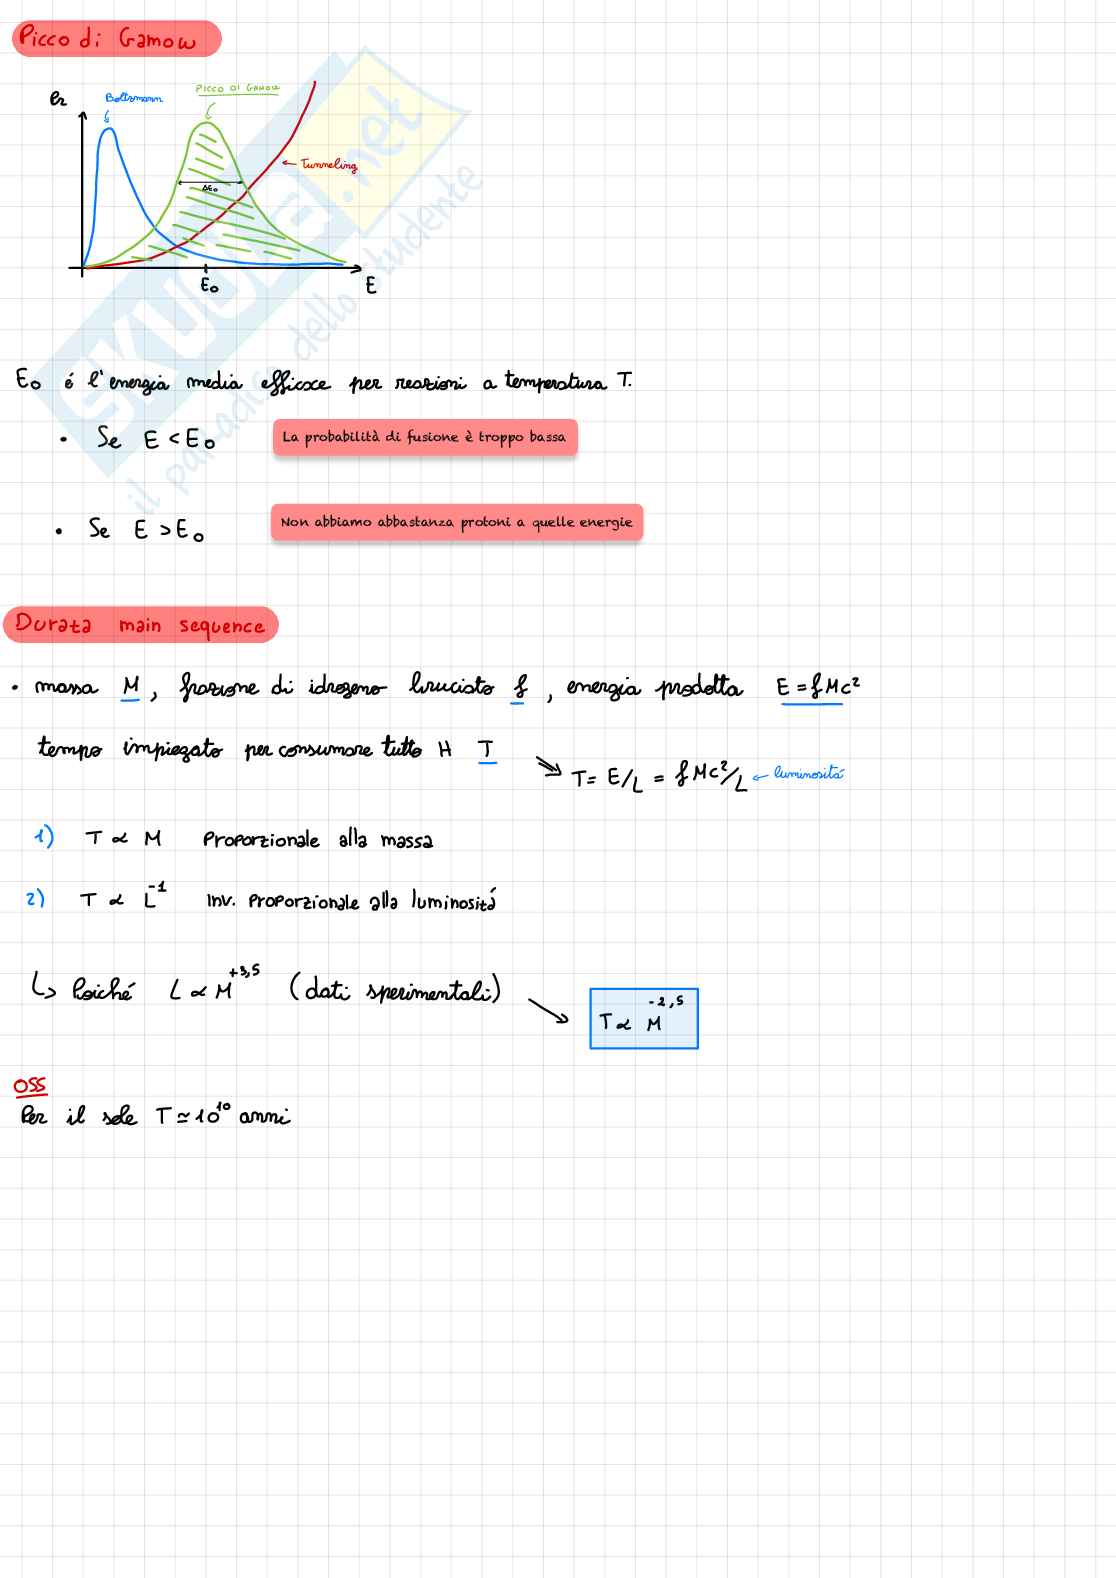 Picco di Gamow
PICCO DI GAMOW
Boltzmann
Pr
Tunneling
ΔE₀
E₀
E
SKUOLA.net
il paradiso dello studente
E₀ é l'energia media efficace per reazioni a temperatura T.
• Se E < E₀ La probabilità di fusione è troppo bassa
• Se E > E₀ Non abbiamo abbastanza protoni a quelle energie
Durata main sequence
• massa M, frazione di idrogeno bruciato f, energia prodotta E = fMc²
tempo impiegato per consumare tutto H T ⇒ T = E/L = fMc²/L ← luminositá
1) T ∝ M Proporzionale alla massa
2) T ∝ L⁻¹ Inv. proporzionale alla luminositá
↳ Poiché L ∝ M⁺³,⁵ (dati sperimentali) → T ∝ M⁻²,⁵
OSS
Per il sole T ≃ 10¹⁰ anni